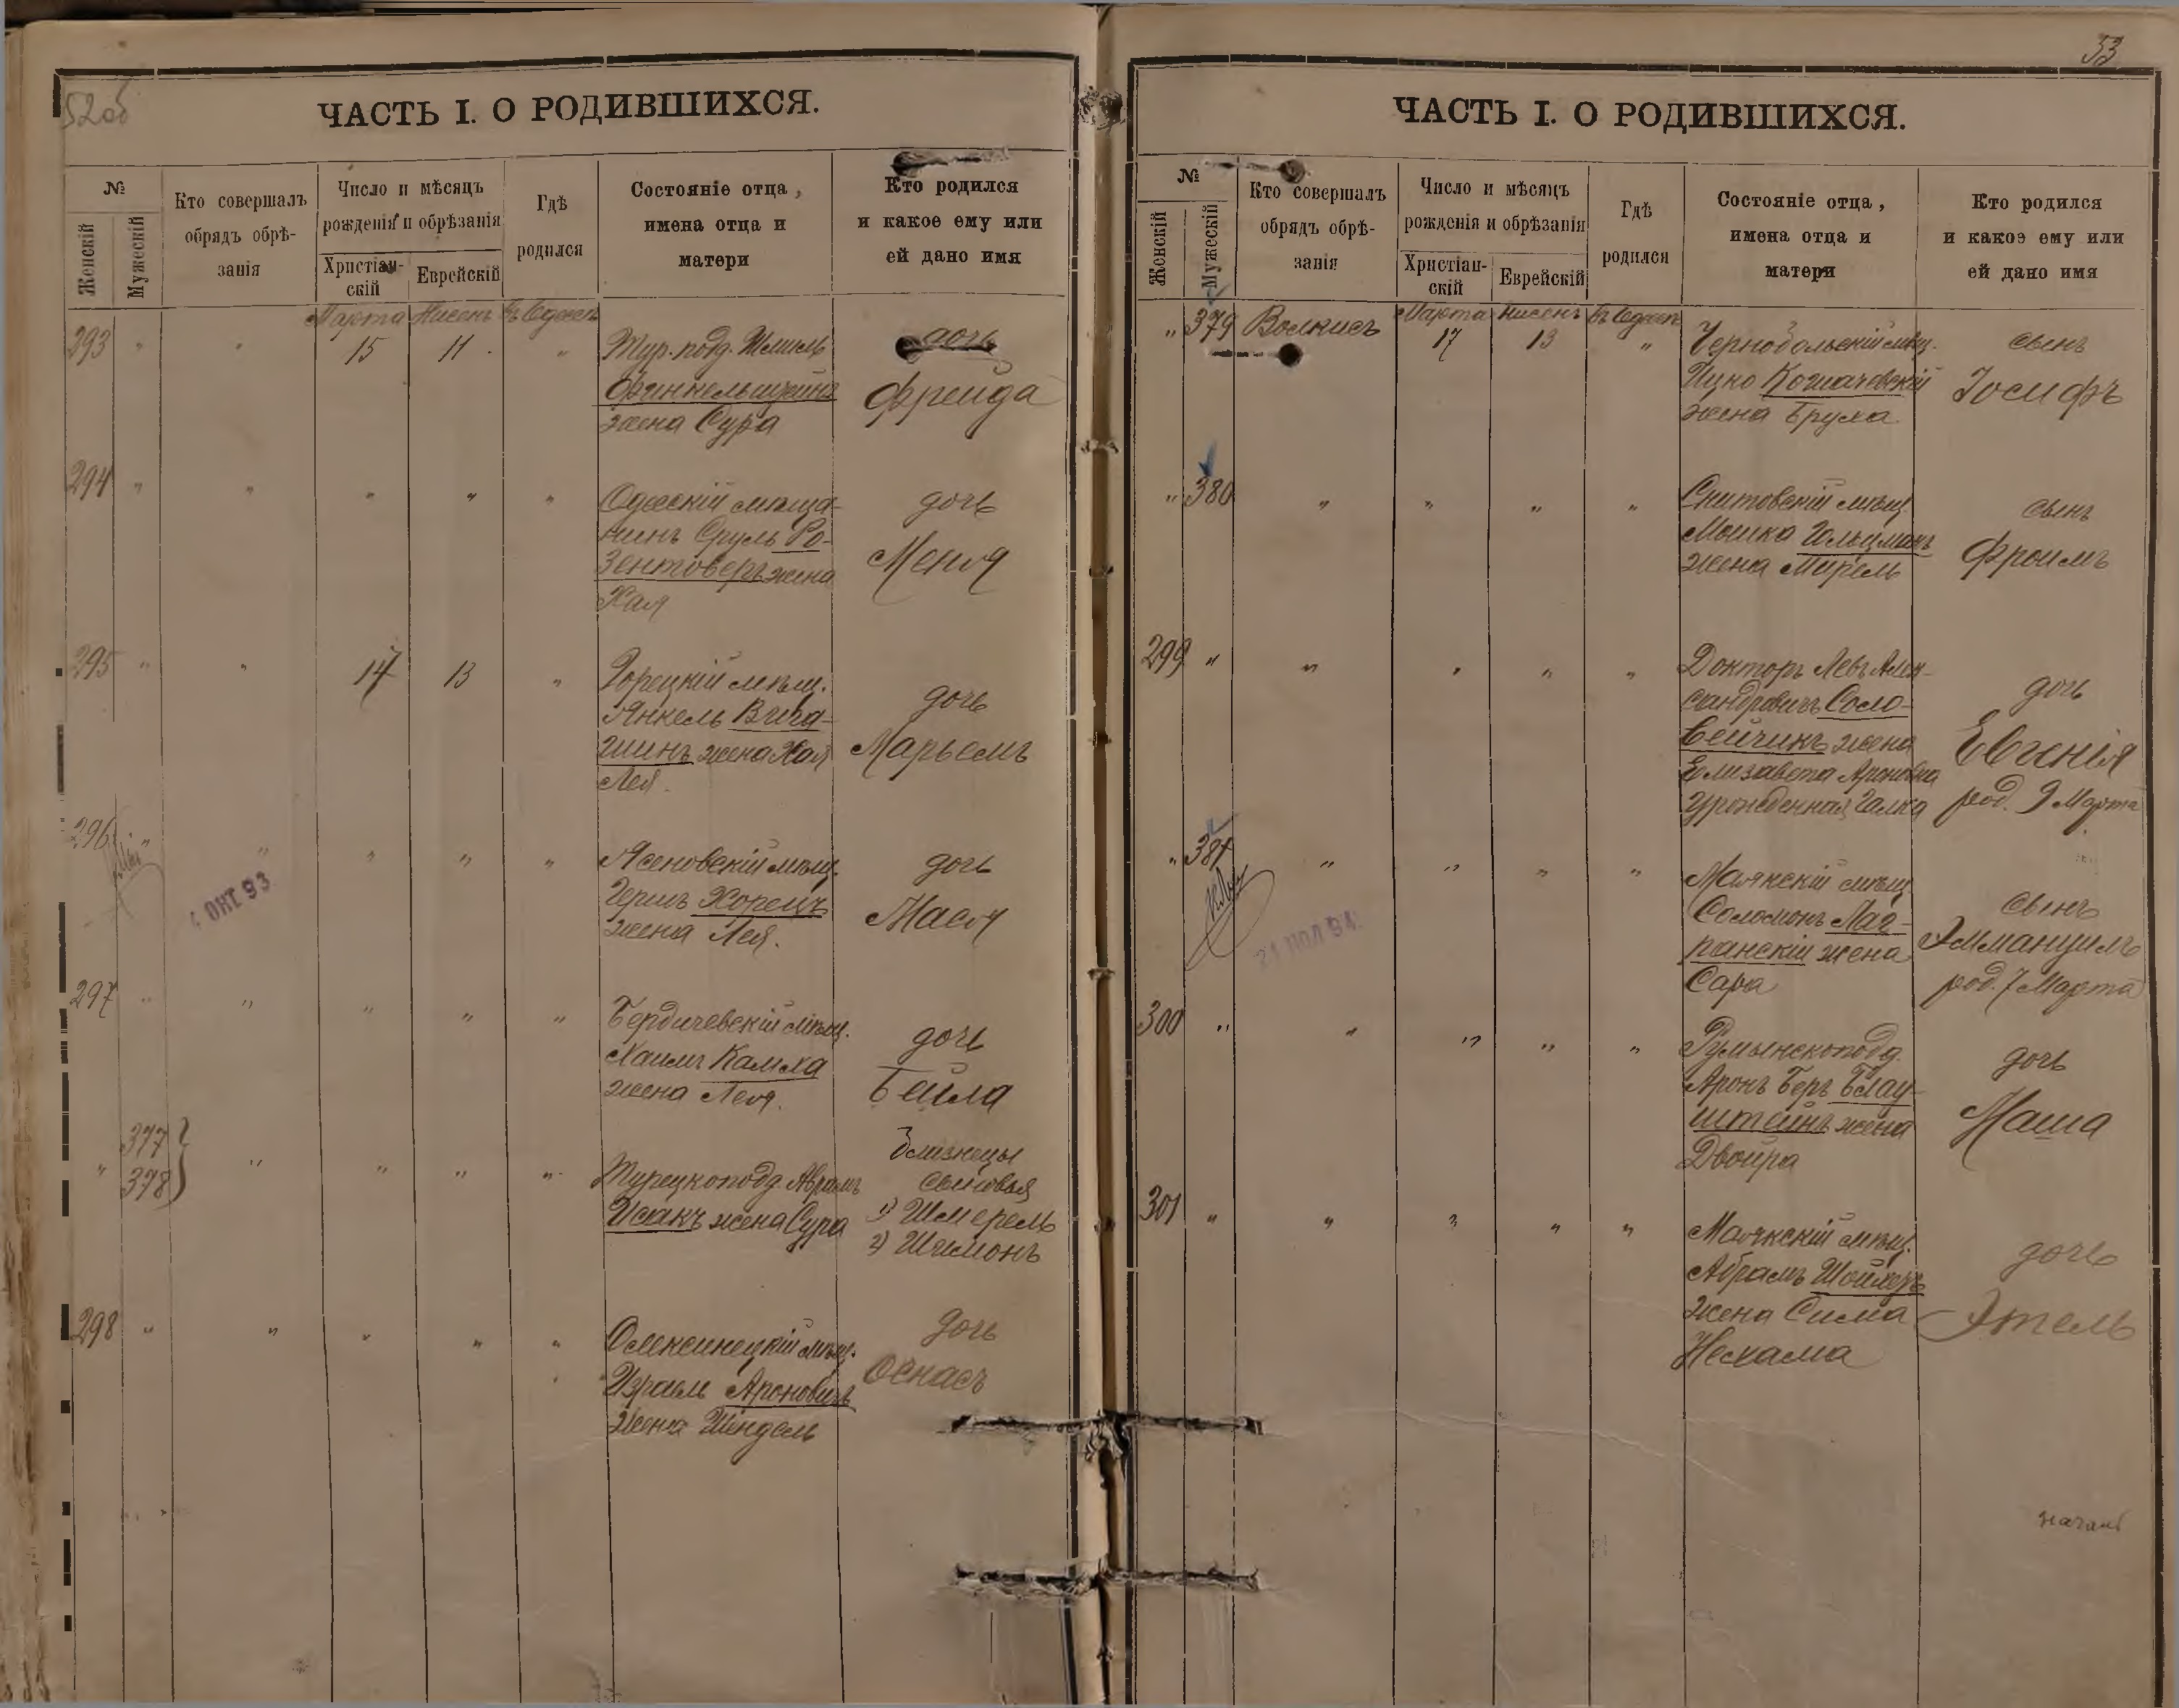 52об
ЧАСТЬ I. О РОДИВШИХСЯ.
№
Женскій
Мужескій
Кто совершалъ
обрядъ обрѣ-
занія
Число и мѣсяцъ
рожденія и обрѣзанія
Христіан-
скій
Еврейскій
Гдѣ
родился
Состояніе отца,
имена отца и
матери
Кто родился
и какое ему или
ей дано имя
Марта Нисенъ въ Одессѣ
293 " " 15 11 " Тур. подд. дочь
Финкельштейнъ Фрейда
жена Сура
294 " " " " " Одесскій мѣща- дочь
нинъ Сруль Ро-
зентоверъ жена Меня
Хая
295 " " 17 13 " Горецкій мѣщ. дочь
Янкель
жена Хая Марьемъ
Лея.
296 " " " " " Ясеновскій мѣщ. дочь
4 ОКТ 93
Гершъ Хорецъ Мася
жена Лея.
297 " " " " " Бердичевскій мѣщ. дочь
Хаимъ Камха Бейла
жена Лея.
377
" 378 " " " " Турецкоподд. Аврамъ
Исакъ жена Сура
Близнецы
сыновья
1) Шмерель
2) Шимонъ
298 " " " " " Олексинецкій мѣщ. дочь
Израель Ароновичъ Оснасъ
жена Шендель
53
ЧАСТЬ I. О РОДИВШИХСЯ.
№
Женскій
Мужескій
Кто совершалъ
обрядъ обрѣ-
занія
Число и мѣсяцъ
рожденія и обрѣзанія
Христіан-
скій
Еврейскій
Гдѣ
родился
Состояніе отца,
имена отца и
матери
Кто родился
и какое ему или
ей дано имя
Марта Нисенъ въ Одессѣ
" 379 Волкисъ 17 13 " Чернобольскій мѣщ. сынъ
Ицко Когачевскій Іосифъ
жена Бруха
" 380 " " " " Снитовскій мѣщ. сынъ
Мошка Гольцманъ Фроимъ
жена Мирель
299 " " " " " Докторъ Левъ Алек- дочь
сандровичъ Соло-
вейчикъ жена Евгенія
Елизавета Ароновна род. 9 Марта
урожденная Галка
" 381 " " " " Маякскій мѣщ. сынъ
21 ІЮЛ 94
Соломонъ Эммануилъ
жена
Сара род. 7 Марта
300 " " " " " Румынскоподд. дочь
Аронъ Беръ Блау-
штейнъ жена Маша
Двойра
301 " " " " " Маякскій мѣщ. дочь
Абрамъ Шойхетъ
жена Сима Этель
Нехама